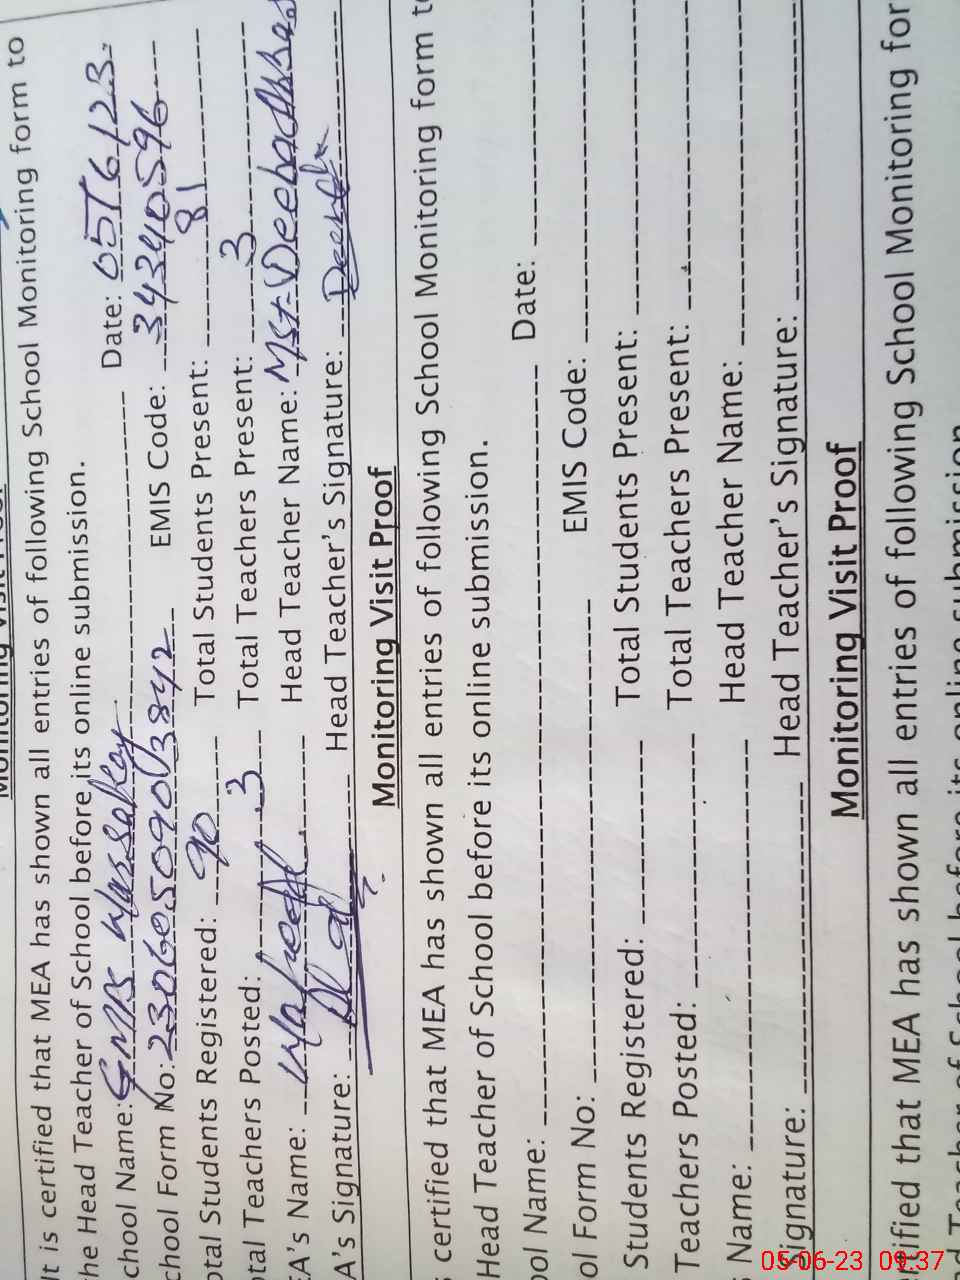 Monitoring Visit Proof
It is certified that MEA has shown all entries of following School Monitoring form to
the Head Teacher of School before its online submission.
chool Name: GMPS Date: 05/6/23
chool Form No: EMIS Code: 34340596
otal Students Registered: 90 Total Students Present: 81
otal Teachers Posted: 3 Total Teachers Present: 3
EA's Name: Head Teacher Name: Mst. Deeba
A's Signature: Head Teacher's Signature:
Monitoring Visit Proof
certified that MEA has shown all entries of following School Monitoring form to
Head Teacher of School before its online submission.
ool Name: Date:
ol Form No: EMIS Code:
Students Registered: Total Students Present:
Teachers Posted: Total Teachers Present:
Name: Head Teacher Name:
Signature: Head Teacher's Signature:
Monitoring Visit Proof
rtified that MEA has shown all entries of following School Monitoring for
ad Teacher of School before its online submission
05-06-23 09:37